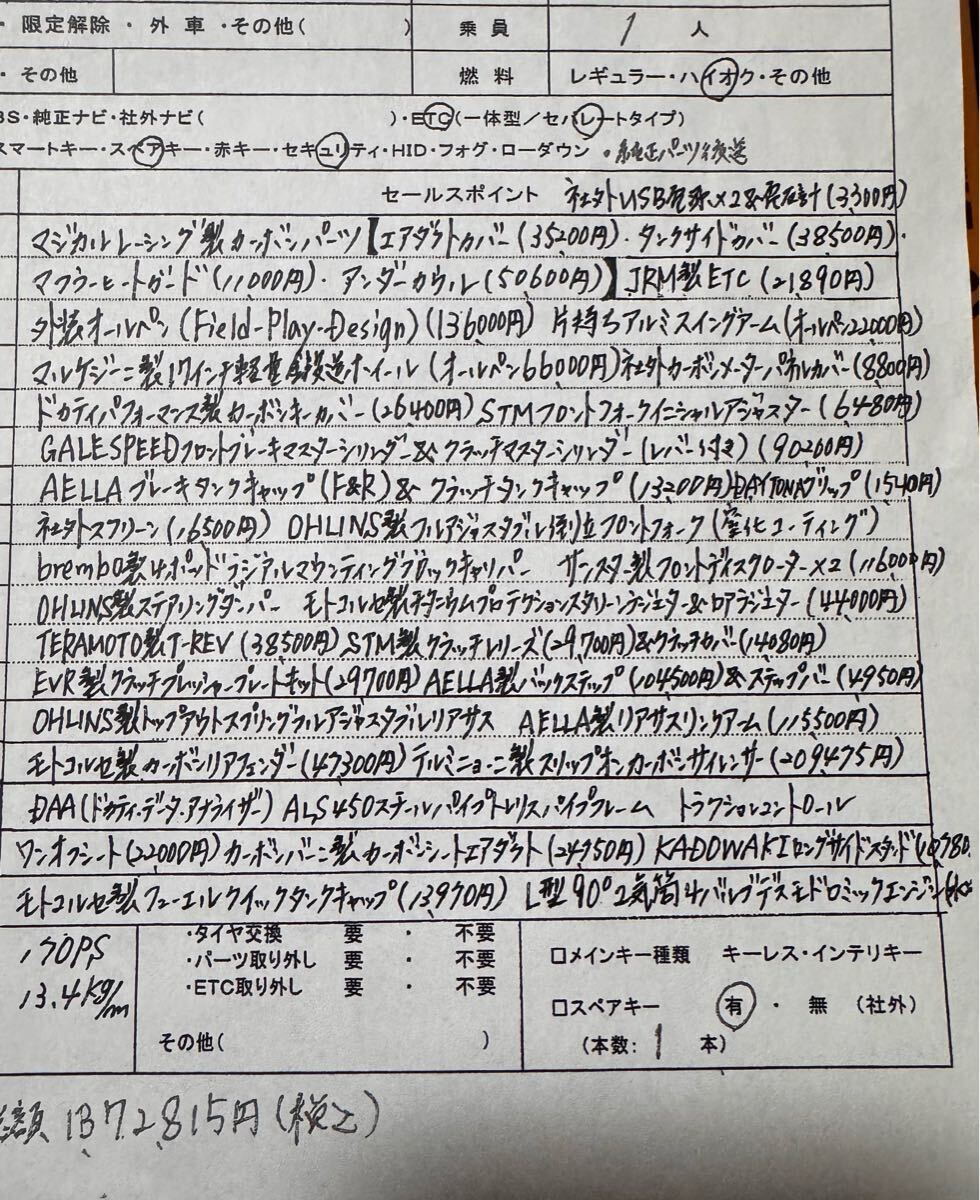 ・限定解除・外車・その他(　　　) 乗員 1 人
・その他 燃料 レギュラー・ハイオク・その他
BS・純正ナビ・社外ナビ(　　　)・ETC(一体型／セパレートタイプ)
スマートキー・スペアキー・赤キー・セキュリティ・HID・フォグ・ローダウン ・純正パーツ後送
セールスポイント 社外USB電源×2&電圧計(3,300円)
マジカルレーシング製カーボンパーツ【エアダクトカバー(35200円)・タンクサイドカバー(38500円)・
マフラーヒートガード(11,000円)・アンダーカウル(50,600円)】JRM製ETC(21,890円)
外装オールペン(Field-Play-Design)(136000円) 片持ちアルミスイングアーム(オールペン22000円)
マルケジーニ製17インチ軽量鍛造ホイール(オールペン66000円)社外カーボンメーターパネルカバー(8,800円)
ドカティパフォーマンス製カーボンキーカバー(26400円)STMフロントフォークイニシャルアジャスター(6,480円)
GALESPEEDフロントブレーキマスターシリンダー&クラッチマスターシリンダー(レバー付き)(90200円)
AELLAブレーキタンクキャップ(F&R)&クラッチタンクキャップ(13200円)DAYTONAグリップ(1,540円)
社外スクリーン(16500円) OHLINS製フルアジャスタブル倒立フロントフォーク(窒化コーティング)
brembo製4ポッドラジアルマウンティングブロックキャリパー サンスター製フロントディスクローター×2(116000円)
OHLINS製ステアリングダンパー モトコルセ製チタニウムプロテクションスクリーンラジエター&ロアラジエター(44000円)
TERAMOTO製T-REV(38500円)STM製クラッチレリーズ(29,700円)&クラッチカバー(14080円)
EVR製クラッチプレッシャープレートキット(29700円)AELLA製バックステップ(104500円)&ステップバー(4950円)
OHLINS製トップアウトスプリングフルアジャスタブルリアサス AELLA製リアサスリンクアーム(115500円)
モトコルセ製カーボンリアフェンダー(47,300円)テルミニョーニ製スリップオンカーボンサイレンサー(209,475円)
DAA(ドカティ・データ・アナライザー)ALS450スチールパイプトレリスパイプフレーム トラクションコントロール
ワンオフシート(22000円)カーボンバーニ製カーボンシートエアダクト(24750円)KADOWAKIロングサイドスタンド(10780
モトコルセ製フューエルクイックタンクキャップ(13,970円) L型90°2気筒4バルブデスモドロミックエンジン
170PS
13.4kg/m
・タイヤ交換 要 ・ 不要
・パーツ取り外し 要 ・ 不要
・ETC取り外し 要 ・ 不要
その他(　　　)
□メインキー種類 キーレス・インテリキー
□スペアキー 有 ・ 無 (社外)
(本数: 1 本)
総額 1372,815円(税込)